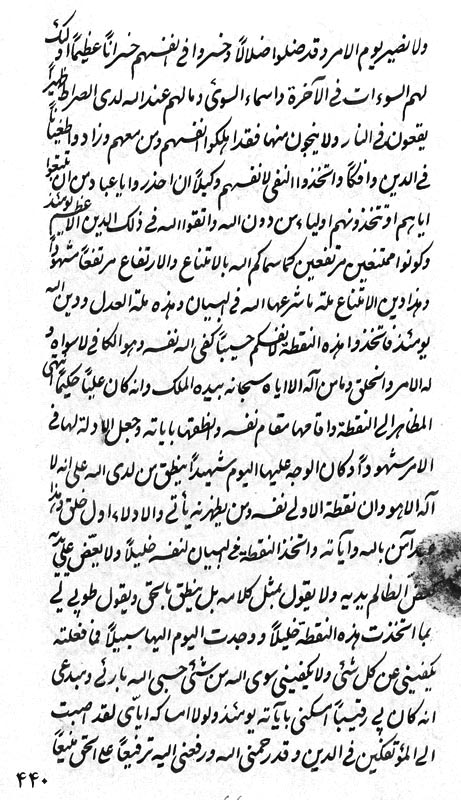 ولا نصير يوم الامر وقد ضلوا ضلالاً وخسروا في انفسهم خسراناً عظيماً اولئك
لهم السوءات في الآخرة واسماء السوئ وما لهم عند الله لدى الصراط ظهيراً
يقعون في النار ولا ينجون منها فقد اهلكوا انفسهم ومن معهم وزادوا طغياناً
في الدين وافكاً واتخذوا النفى لانفسهم وكيلاً ان احذروا يا عباد من ان تتبعوا
اياهم او تتخذونهم اولياء من دون الله واتقوا الله في ذلك الدين الايم عظيم يومئذ
وكونوا ممتنعين مرتفعين كما سماكم الله بالامتناع والارتفاع مرتفعاً مشهوداً
وهذا دين الامتناع ملة ما شرعها الله في البيان وهذه ملة العدل ودين الله
يومئذ فاتخذوا هذه النقطة لانفسكم حسيباً كفى الله نفسه وهو الكافي لا سواه و
له الامر والخلق وما من آله الا اياه سبحانه بيده الملك وانه كان عليماً حكيماً
المظاهر الى النقطة واقامها مقام نفسه وانطقها باياته وجعل الادلة لها في
الامر مشهوداً وكان الوجه عليها اليوم شهيداً ينطق من لدى الله على انه لا
آله الا هو وان نقطة الاولى نفسه ومن يظهرنه يأتي والادلاء اول خلق وهذا
آمن بالله وآياته واتخذ النقطة في البيان لنفسه خليلاً ولا يعض على يديه
الظالم يديه ولا يقول بمثل كلامه بل ينطق بالحق ويقول طوبى لي
بما اتخذت هذه النقطة خليلاً ووجدت اليوم اليها سبيلاً فما فعلته
يكفيني عن كل شئ ولا يكفيني سوى الله من شئ حسبي الله بارئي ومبدعي
انه كان بي رقيباً اسكنني باياته يومئذ ولولا امساكه اياي لقد اصبت
الى المؤتفكين في الدين وقد رحمني الله ورفعني اليه ترفيعاً على الحق منيعاً
۴۴۰